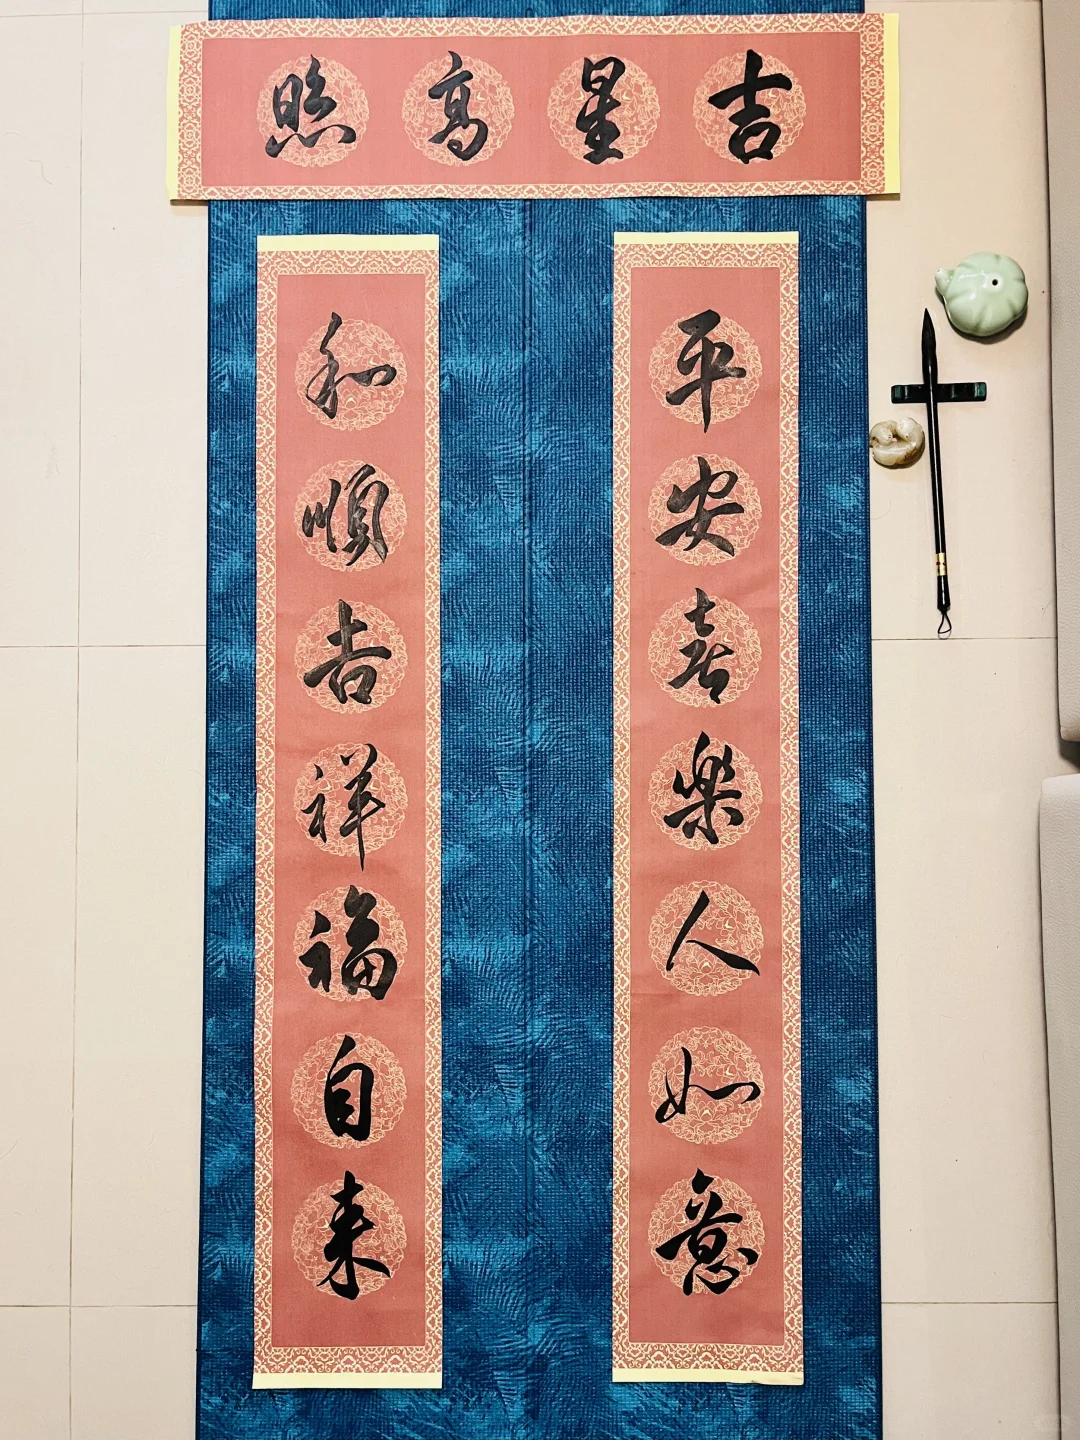 吉星高照
平安喜樂人如意
和順吉祥福自来